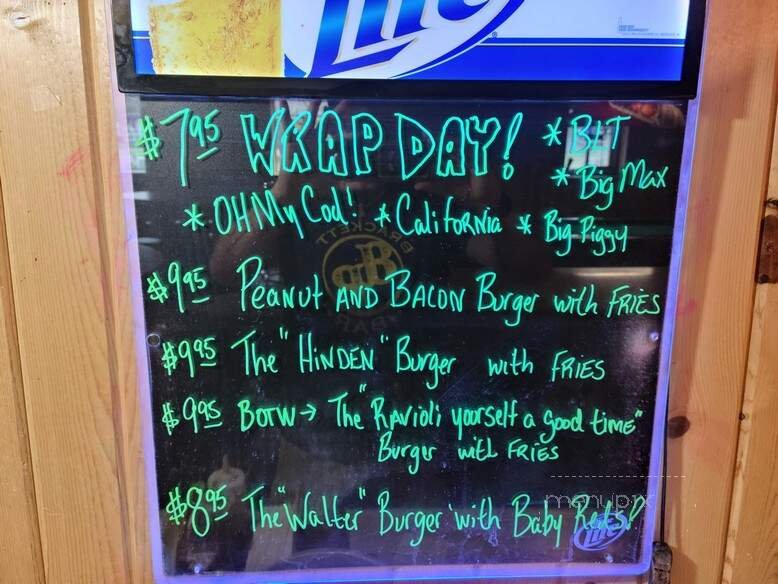 Lite
$7.95 WRAP DAY! * BLT
* Big Max
* OH My Cod! * California * Big Piggy
BRACKETT
BAR
$9.95 Peanut AND BACON Burger with FRIES
$9.95 The "HINDEN" Burger with FRIES
$9.95 BOTW → The "RAvioli yourself a good time"
Burger with FRIES
$8.95 The "Walter" Burger with Baby Reds!
menupix
Lite